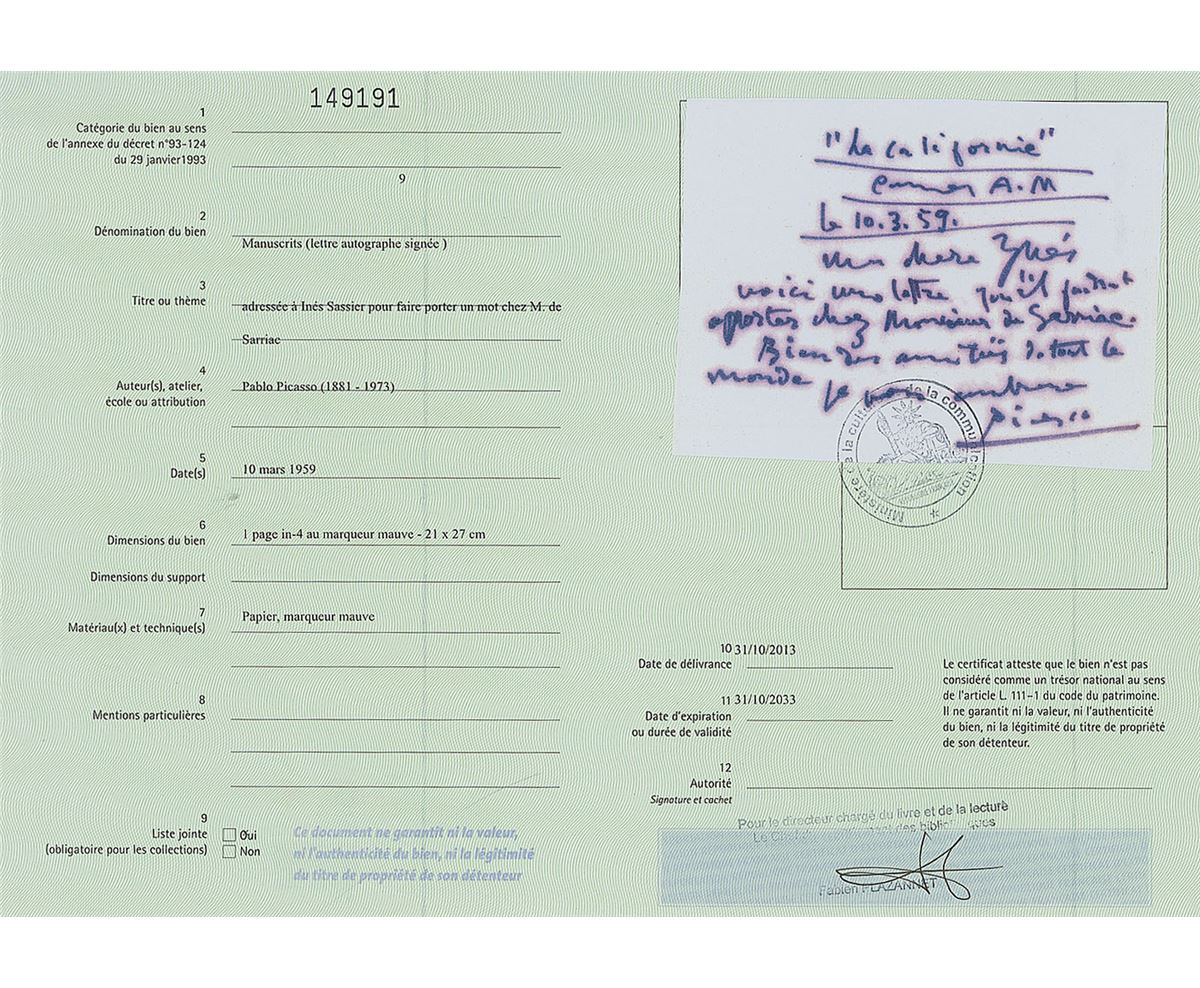 149191
1
Catégorie du bien au sens
de l'annexe du décret n°93-124
du 29 janvier1993
9
2
Dénomination du bien
Manuscrits (lettre autographe signée )
3
Titre ou thème
adressée à Inés Sassier pour faire porter un mot chez M. de
Sarriac
4
Auteur(s), atelier,
école ou attribution
Pablo Picasso (1881 - 1973)
5
Date(s)
10 mars 1959
6
Dimensions du bien
1 page in-4 au marqueur mauve - 21 x 27 cm
Dimensions du support
7
Matériau(x) et technique(s)
Papier, marqueur mauve
8
Mentions particulières
9
Liste jointe
(obligatoire pour les collections)
Oui
Non
Ce document ne garantit ni la valeur,
ni l'authenticité du bien, ni la légitimité
du titre de propriété de son détenteur
"La californie"
A.M
le 10.3.59.
ma chere Ynés
voici une lettre qu'il faudrait
apporter chez Monsieur de Sarriac.
Bien des amitiés de tout le
monde je vous embrasse
Picasso
Ministère de la culture de la communication
10 31/10/2013
Date de délivrance
11 31/10/2033
Date d'expiration
ou durée de validité
12
Autorité
Signature et cachet
Le certificat atteste que le bien n'est pas
considéré comme un trésor national au sens
de l'article L. 111-1 du code du patrimoine.
Il ne garantit ni la valeur, ni l'authenticité
du bien, ni la légitimité du titre de propriété
de son détenteur.
Pour le directeur chargé du livre et de la lecture
Le Chef du des bibliothèques
Fabien PLAZANNET